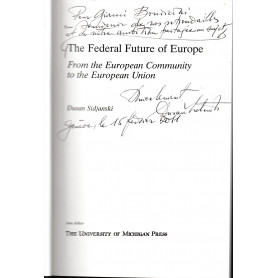 Pour Gianni Bonvicini
souvenir de nos
et de notre ambition partagée au sujet
The Federal Future of Europe
From the European Community
to the European Union
Dusan Sidjanski
Amicalement
Dusan Sidjanski
Genève, le 15 février 2011
Ann Arbor
THE UNIVERSITY OF MICHIGAN PRESS